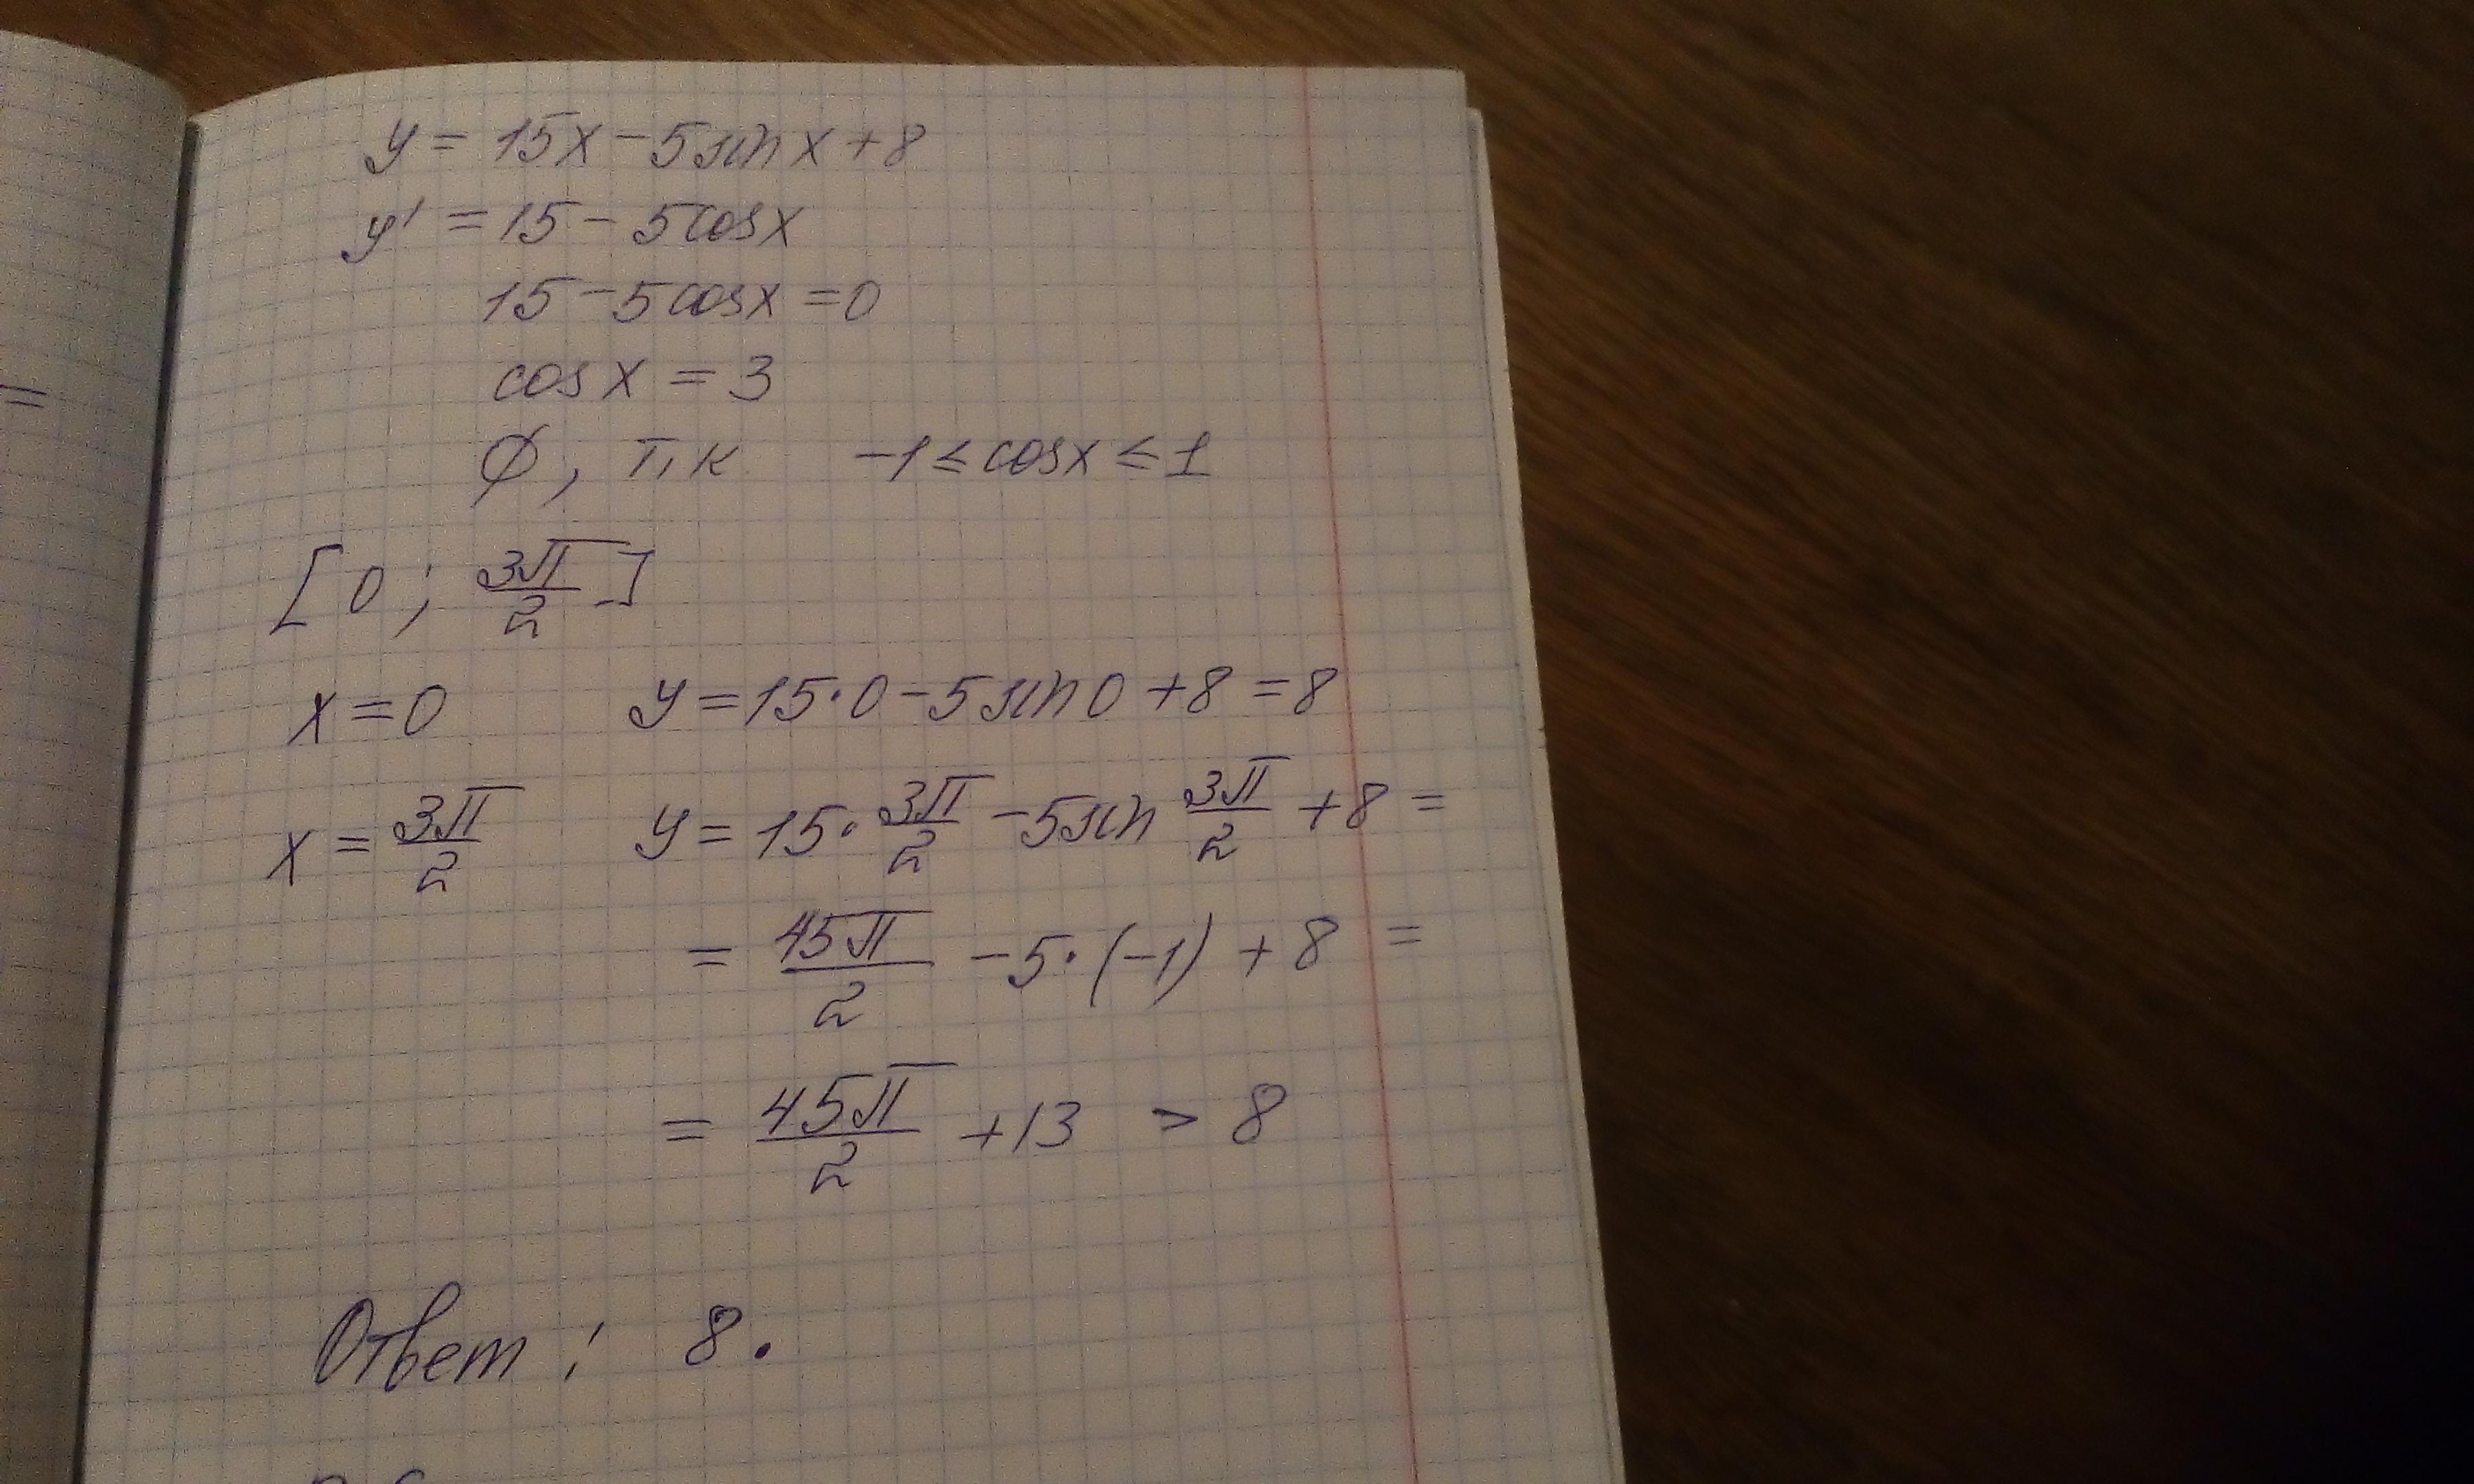 y = 15x - 5sin x + 8
y' = 15 - 5cosx
15 - 5cosx = 0
cos x = 3
∅, т.к -1 ≤ cosx ≤ 1
[0; 3π/2]
x = 0 y = 15·0 - 5sin0 + 8 = 8
x = 3π/2 y = 15·3π/2 - 5sin 3π/2 + 8 =
= 45π/2 - 5·(-1) + 8 =
= 45π/2 + 13 > 8
Ответ: 8.
=